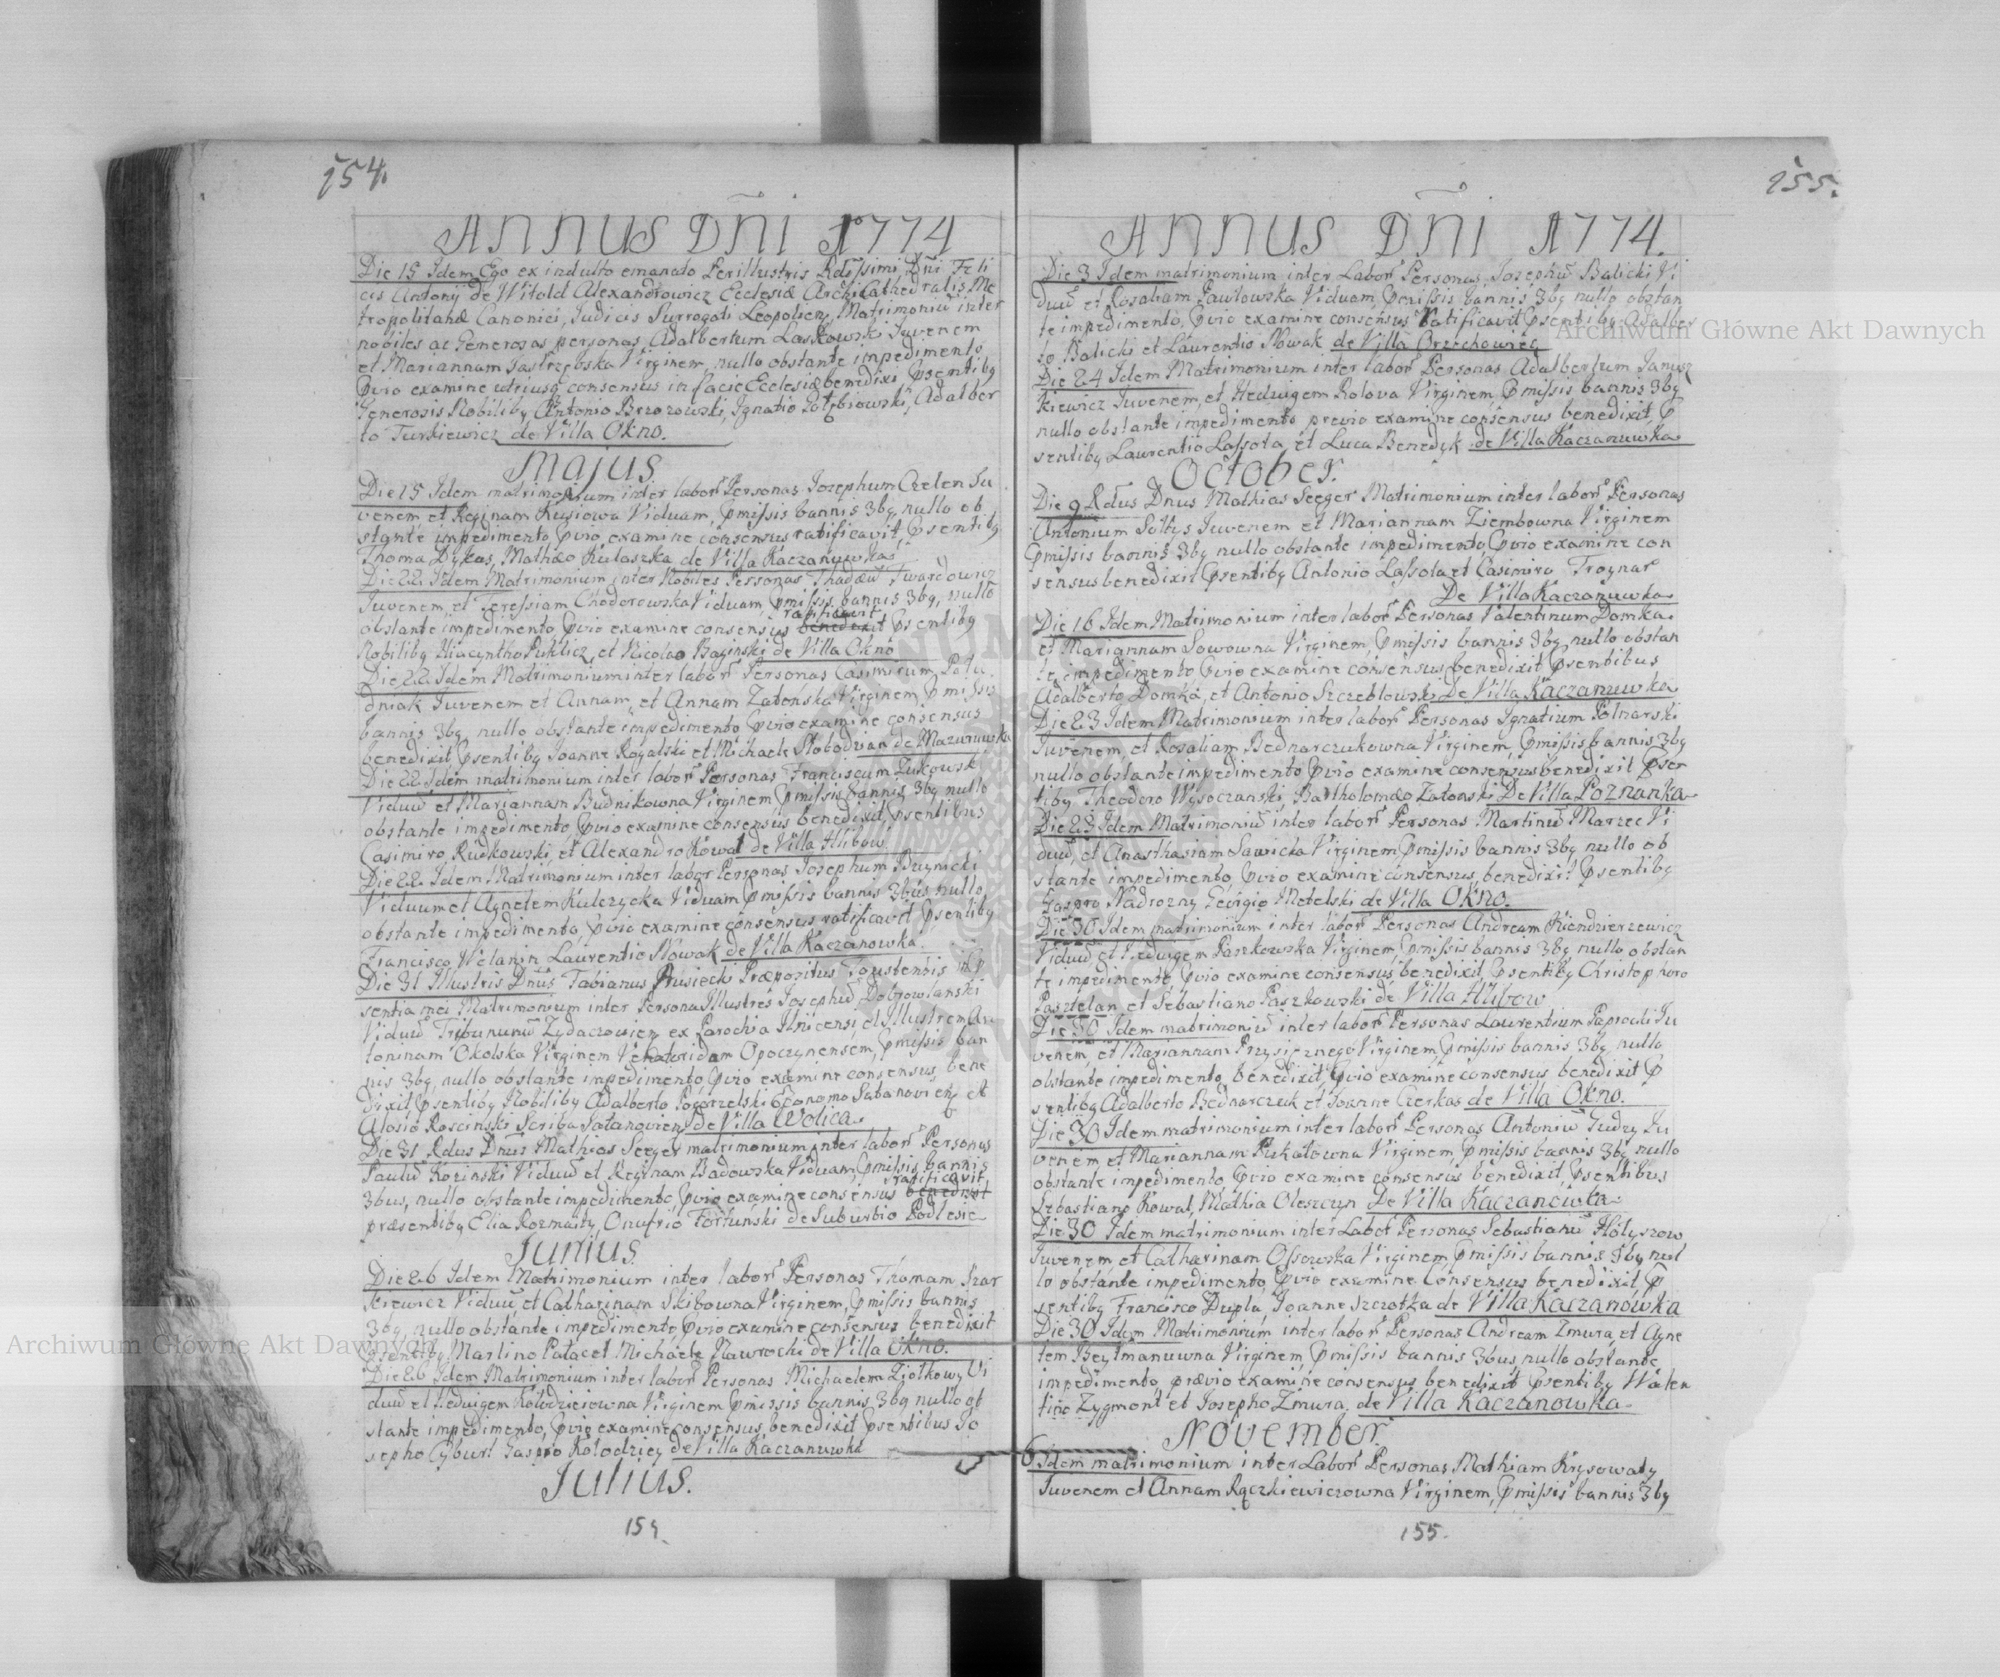 154.
ANNUS DÑI 1774
Die 15 Idem Ego ex indulto emanato Perillustris Rdissimi Dñi Feli
cis Antonij de Witold Alexandrowicz Ecclesiæ ArchiCathedralis Me
tropolitanæ Canonici, Judicis Surrogati Leopolien, Matrimoniũ inter
nobiles ac Generosas personas Adalbertum Laskowski Juvenem
et Mariannam Jastrzębska Virginem, nullo obstante impedimento
Pvio examine utriusq consensus in facie Ecclesiæ benedixi Psentibg
Generosis Nobilibg Antonio Brzozowski, Ignatio Adalber
to Turkiewicz de Villa Okno.
Majus
Die 15 Idem matrimonium inter labor Personas Josephum Czelen Ju
venem et Reginam Kusiowa Viduam, Pmissis bannis 3bg nullo ob
stante impedimento Pvio examine consensus ratificavit, Psentibg
Thoma Dykas, Mathæo Kulaszka de Villa Kaczanuwka
Die 22 Idem Matrimonium inter Nobiles Personas Thadæũ Twardowicz
Juvenem, et Teressiam Chodorowska Viduam, Pmissis bannis 3bg, nullo
ratificavit
obstante impedimento Pvio examine consensus benedixit Psentibg
Nobilibg Hiacyntho Puklicz, et Nicolao Baginski de Villa Okno
Die 22 Idem Matrimonium inter labor Personas Casimirum Potu
dniak Juvenem et Annam, et Annam Zatonska Virginem Pmissis
bannis 3bg nullo obstante impedimento Pvio examine consensus
benedixit Psentibg Joanne Rogalski et Michaele Slobodzian de Mazuruwka
Die 22 Idem matrimonium inter labor Personas Franciscum Zukowsk
Viduũ et Mariannam Budnikowna Virginem Pmissis bannis 3bg nullo
obstante impedimento, Pvio examine consensus benedixit, Psentibus
Casimiro Rudkowski, et Alexandro Kowal de Villa Hlibow
Die 22 Idem Matrimonium inter labor Personas Josephum Buynicki
Viduum et Agnetem Kulczycka Viduam Pmissis bannis 3bus nullo
obstante impedimento, Pvio examine consensus ratificavit Psentibg
Francisco Welanin Laurentio Nowak de Villa Kaczanowka.
Die 31 Illustris Dnus Fabianus Præpositus Toustensis in P
sentia mei Matrimonium inter Personas Illustres Josephũ Dobrowlanski
Viduũ Tribununũ Zydaczowien ex Parochia Ilnicensi et Illustrem An
toninam Okolska Virginem Venatoridam Opoczynensem, Pmissis ban
nis 3bg, nullo obstante impedimento, Pvio examine consensus, bene
dixit Psentibg Nobilibg Adalberto Pogorzelski Economo Satanovien et
Alosio Roscinski Scriba Satanovien de Villa Wolica.
Die 31 Rdus Dnus Mathias Seeger matrimonium inter labor Personas
Paulũ Kozinski Viduũ et Reginam Badowska Viduam, Pmissis bannis
ratificavit
3bus, nullo obstante impedimento Pvio examine consensus benedixit
præsentibg Elia Rozmaity, Onufrio Fortunski de Suburbio Podlesie
Junius.
Die 26 Idem Matrimonium inter labor Personas Thomam Szar
kiewicz Viduũ, et Catharinam Skibowna Virginem, Pmissis bannis
3bg, nullo obstante impedimento, Pvio examine consensus benedixit
Psentibg Martino Pałac et Michaele Nawrocki de Villa Okno.
Die 26 Idem Matrimonium inter labor Personas Michaelem Ziołkowy Vi
duũ et Hedvigem Kołodzieiowna Virginem Pmissis bannis 3bg nullo ob
stante impedimento, Pvio examine consensus, benedixit Psentibus Jo
sepho Cyburt Gaspro Kołodziey de Villa Kaczanuwka
Julius.
154.
155.
ANNUS DÑI 1774.
Die 3 Idem matrimonium inter Labor Personas, Josephũ Balicki Vi
duũ et Rosaliam Pawłowska Viduam, Pmissis bannis 3bg nullo obstan
te impedimento, Pvio examine consensus ratificavit Psentibg Adalber
to Balicki et Laurentio Nowak de Villa Orzechowiec
Die 24 Idem Matrimonium inter labor Personas Adalbertum Janusz
kiewicz Juvenem, et Hedvigem Rolova Virginem, Pmissis bannis 3bg
nullo obstante impedimento previo examine consensus benedixit, P
sentibg Laurentio Lassota, et Luca Benedyk de Villa Kaczanuwka
October.
Die 9 Rdus Dnus Mathias Seeger Matrimonium inter labor Personas
Antonium Sołtys Juvenem et Mariannam Ziembowna Virginem
Pmissis bannis 3bg nullo obstante impedimento Pvio examine con
sensus benedixit Psentibg Antonio Lassota et Casimiro Troynar
De Villa Kaczanuwka
Die 16 Idem Matrimonium inter labor Personas Valentinum Domka
et Mariannam Sowowna Virginem, Pmissis bannis 3bg nullo obstan
te impedimento Pvio examine consensus benedixit Psentibus
Adalberto Domka, et Antonio Szczeblowski De Villa Kaczanuwka
Die 23 Idem Matrimonium inter labor Personas Ignatium Polnarski
Juvenem, et Rosaliam Bednarczukowna Virginem, Pmissis bannis 3bg
nullo obstante impedimento Pvio examine consensus benedixit Psen
tibg Theodoro Wysoczanski, Bartholomæo Zatonski De Villa Poznanka
Die 23 Idem Matrimoniũ inter labor Personas Martinũ Marzec Vi
duũ, et Anasthasiam Sawicka Virginem Pmissis bannis 3bg nullo ob
stante impedimento Pvio examine consensus, benedixit Psentibg
Gaspro Nadrozny Georgio Metelski de Villa Okno.
Die 30 Idem matrimonium inter labor Personas Andream Kiendzierzewicz
Viduũ et Hedvigem Paszkowska Virginem, Pmissis bannis 3bg nullo obstan
te impedimento, Pvio examine consensus benedixit, Psentibg Christophoro
Pasztelan et Sebastiano Paszkowski de Villa Hlibow
Die 30 Idem matrimoniũ inter labor Personas Laurentium Paprocki Ju
venem, et Mariannam Przysiężnego Virginem, Pmissis bannis 3bg nullo
obstante impedimento benedixit, Pvio examine consensus benedixit P
sentibg Adalberto Bednarczuk et Joanne Czerkas de Villa Okno.
Die 30 Idem matrimonium inter labor Personas Antoniũ Gudzy Ju
venem et Mariannam Pukałowna Virginem, Pmissis bannis 3bg nullo
obstante impedimento, Pvio examine consensus benedixit, Psentibus
Sebastiano Kowal, Mathia Oleszczyn De Villa Kaczanowka
Die 30 Idem matrimonium inter Labor Personas Sebastianũ Hołyszow
Juvenem, et Catharinam Ossowska Virginem, Pmissis bannis 3bg nul
lo obstante impedimento, Pvio examine Consensus benedixit, P
sentibg Francisco Dupla, Joanne Szczotka de Villa Kaczanowka
Die 30 Idem Matrimonium inter labor Personas Andream Zmura, et Agne
tem Beytmanuwna Virginem, Pmissis bannis 3bus nullo obstante
impedimento prævio examine consensus benedixit Psentibg Walen
tino Zygmont et Josepho Zmura, de Villa Kaczanowka.
November.
6 Idem matrimonium inter Labor Personas Mathiam Krysowaty
Juvenem et Annam Rączkiewiczowna Virginem, Pmissis bannis 3bg
155.
Archiwum Główne Akt Dawnych
Archiwum Główne Akt Dawnych